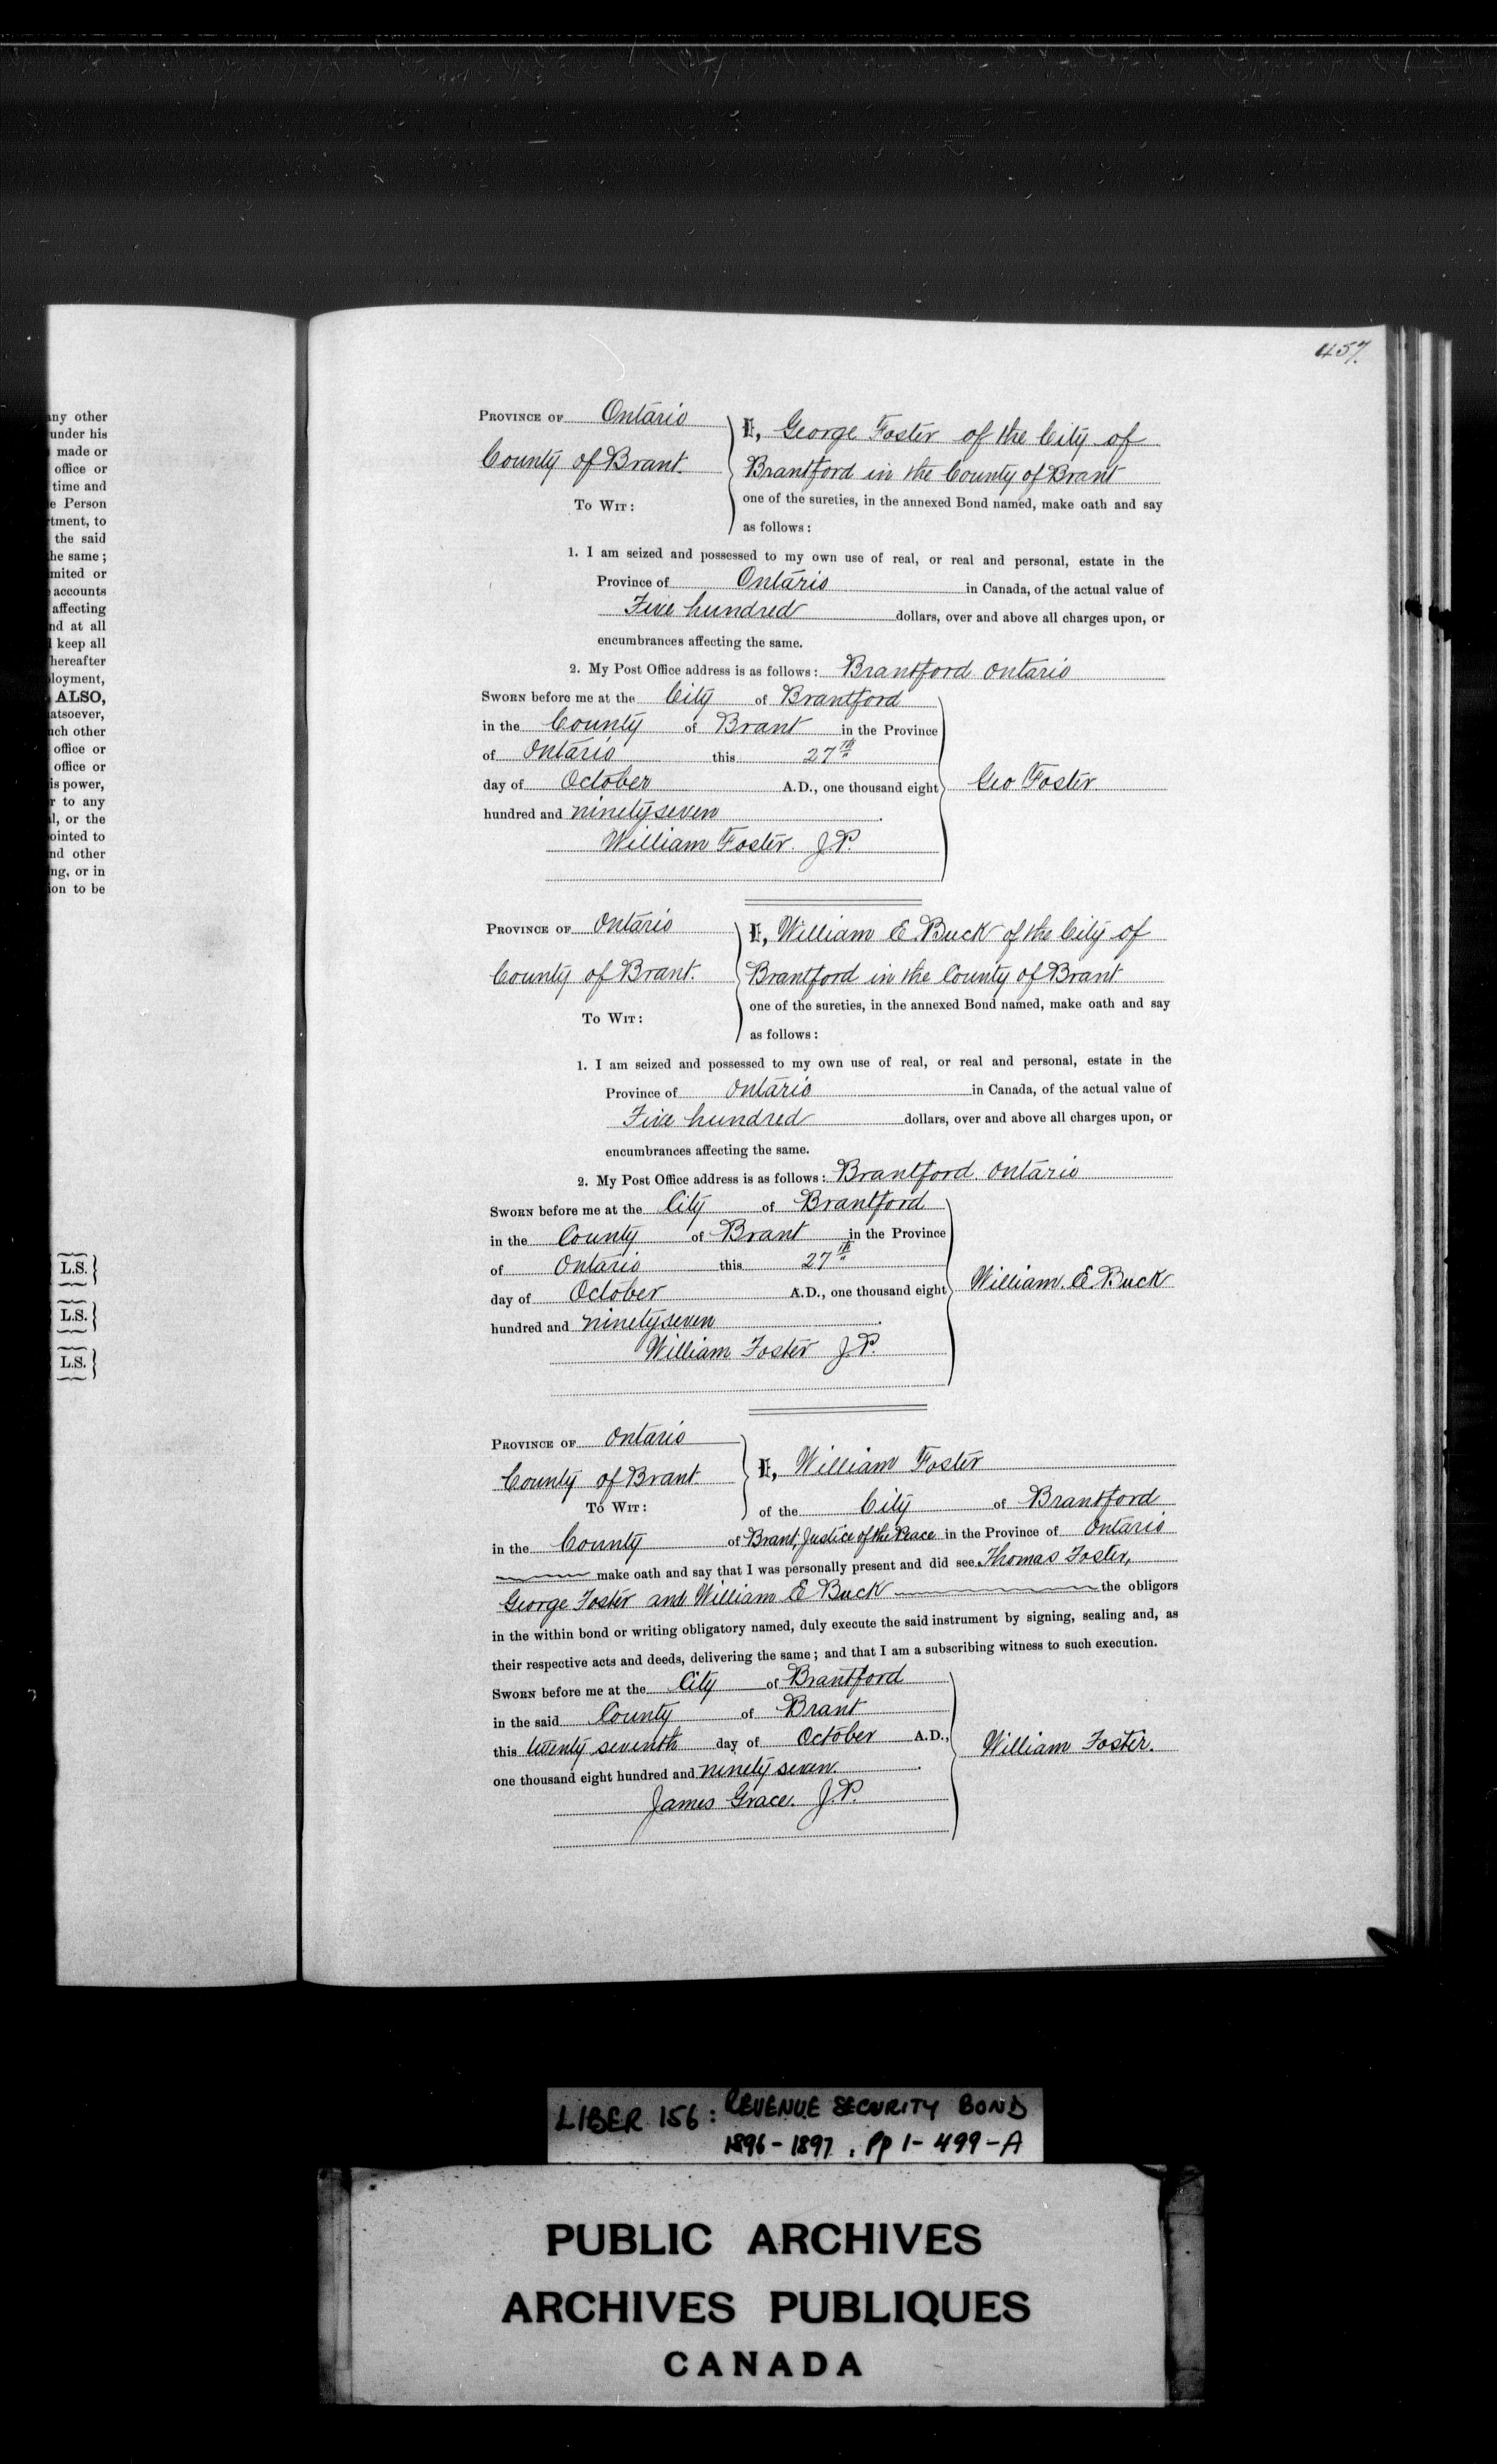 any other
under his
made or
office or
time and
e Person
rtment, to
the said
he same;
mited or
accounts
affecting
nd at all
keep all
hereafter
loyment,
ALSO,
atsoever,
uch other
office or
office or
is power,
r to any
l, or the
ointed to
nd other
ng, or in
ion to be
L.S.
L.S.
L.S.
457.
PROVINCE OF Ontario
County of Brant.
TO WIT:
I, George Foster of the City of
Brantford in the County of Brant
one of the sureties, in the annexed Bond named, make oath and say
as follows:
1. I am seized and possessed to my own use of real, or real and personal, estate in the
Province of Ontario in Canada, of the actual value of
Five hundred dollars, over and above all charges upon, or
encumbrances affecting the same.
2. My Post Office address is as follows: Brantford Ontario
SWORN before me at the City of Brantford
in the County of Brant in the Province
of Ontario this 27th
day of October A.D., one thousand eight
hundred and ninety seven.
William Foster. J.P.
Geo Foster.
PROVINCE OF Ontario
County of Brant.
TO WIT:
I, William E. Buck of the City of
Brantford in the County of Brant
one of the sureties, in the annexed Bond named, make oath and say
as follows:
1. I am seized and possessed to my own use of real, or real and personal, estate in the
Province of Ontario in Canada, of the actual value of
Five hundred dollars, over and above all charges upon, or
encumbrances affecting the same.
2. My Post Office address is as follows: Brantford. Ontario
SWORN before me at the City of Brantford
in the County of Brant in the Province
of Ontario this 27th
day of October A.D., one thousand eight
hundred and ninety seven.
William Foster J.P.
William. E. Buck
PROVINCE OF Ontario
County of Brant
TO WIT:
I, William Foster
of the City of Brantford
in the County of Brant, Justice of the Peace in the Province of Ontario
make oath and say that I was personally present and did see Thomas Foster,
George Foster and William E Buck the obligors
in the within bond or writing obligatory named, duly execute the said instrument by signing, sealing and, as
their respective acts and deeds, delivering the same; and that I am a subscribing witness to such execution.
SWORN before me at the City of Brantford
in the said County of Brant
this twenty seventh day of October A.D.,
one thousand eight hundred and ninety seven.
James Grace. J.P.
William Foster.
LIBER 156: REVENUE SECURITY BOND
1896-1897. Pp 1-499-A
PUBLIC ARCHIVES
ARCHIVES PUBLIQUES
CANADA